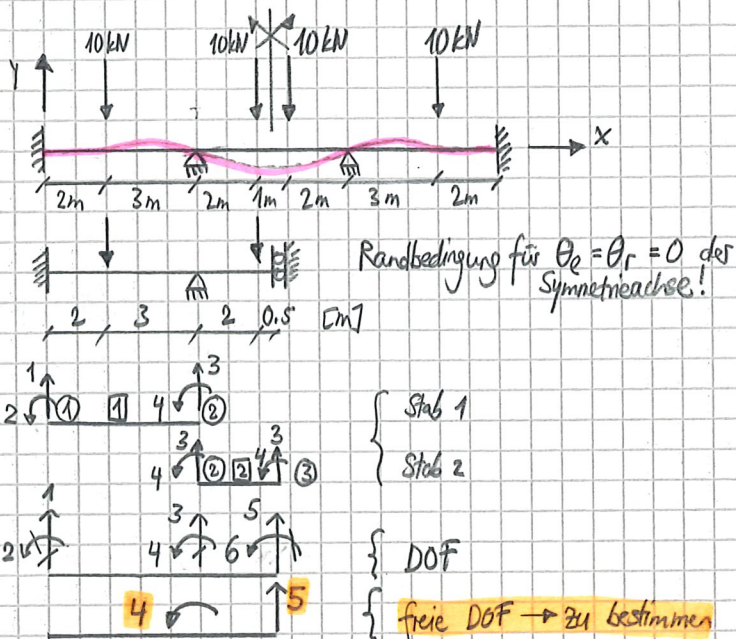 10kN 10kN 10kN 10kN
Y
X
2m 3m 2m 1m 2m 3m 2m
Randbedingung für θe = θr = 0 der
Symnetrieachse!
2 3 2 0.5 [m]
1 3
2 ① 1 4 ② Stab 1
3 3
4 ② 2 4 ③ Stab 2
1 3 5
2 4 6 DOF
4 5 freie DOF → zu bestimmen